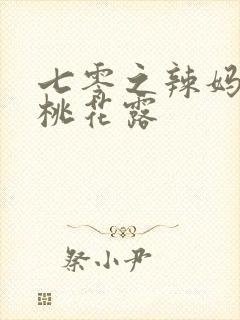 七零之辣妈
桃花露
祭小尹